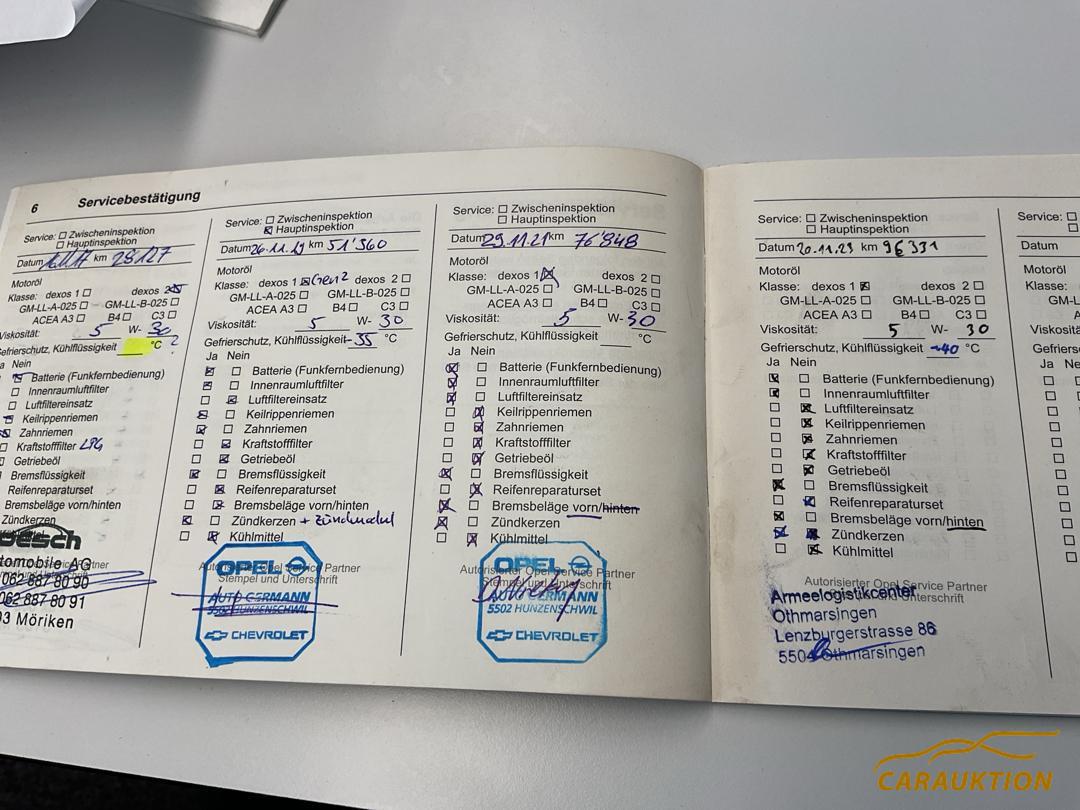 6 Servicebestätigung
Service: Zwischeninspektion
Hauptinspektion
Datum km 28127
Motoröl
Klasse: dexos 1 dexos 2
GM-LL-A-025 GM-LL-B-025
ACEA A3 B4 C3
Viskosität: 5 W- 30
Gefrierschutz, Kühlflüssigkeit °C ?
Nein
Batterie (Funkfernbedienung)
Innenraumluftfilter
Luftfiltereinsatz
Keilrippenriemen
Zahnriemen
Kraftstofffilter LPG
Getriebeöl
Bremsflüssigkeit
Reifenreparaturset
Bremsbeläge vorn/hinten
Zündkerzen
tomobile AG
062 887 80 90
062 887 80 91
03 Möriken
Service: Zwischeninspektion
Hauptinspektion
Datum 26.11.19 km 51'360
Motoröl
Klasse: dexos 1 Gen2 dexos 2
GM-LL-A-025 GM-LL-B-025
ACEA A3 B4 C3
Viskosität: 5 W- 30
Gefrierschutz, Kühlflüssigkeit -35 °C
Ja Nein
Batterie (Funkfernbedienung)
Innenraumluftfilter
Luftfiltereinsatz
Keilrippenriemen
Zahnriemen
Kraftstofffilter
Getriebeöl
Bremsflüssigkeit
Reifenreparaturset
Bremsbeläge vorn/hinten
Zündkerzen + Zündmodul
Kühlmittel
OPEL
Autorisierter Opel Service Partner
Stempel und Unterschrift
AUTO GERMANN
5502 HUNZENSCHWIL
CHEVROLET
Service: Zwischeninspektion
Hauptinspektion
Datum 29.11.21 km 76'848
Motoröl
Klasse: dexos 1 dexos 2
GM-LL-A-025 GM-LL-B-025
ACEA A3 B4 C3
Viskosität: 5 W- 30
Gefrierschutz, Kühlflüssigkeit °C
Ja Nein
Batterie (Funkfernbedienung)
Innenraumluftfilter
Luftfiltereinsatz
Keilrippenriemen
Zahnriemen
Kraftstofffilter
Getriebeöl
Bremsflüssigkeit
Reifenreparaturset
Bremsbeläge vorn/hinten
Zündkerzen
Kühlmittel
OPEL
Autorisierter Opel Service Partner
Stempel und Unterschrift
AUTO GERMANN
5502 HUNZENSCHWIL
CHEVROLET
Service: Zwischeninspektion
Hauptinspektion
Datum 20.11.23 km 96331
Motoröl
Klasse: dexos 1 dexos 2
GM-LL-A-025 GM-LL-B-025
ACEA A3 B4 C3
Viskosität: 5 W- 30
Gefrierschutz, Kühlflüssigkeit -40 °C
Ja Nein
Batterie (Funkfernbedienung)
Innenraumluftfilter
Luftfiltereinsatz
Keilrippenriemen
Zahnriemen
Kraftstofffilter
Getriebeöl
Bremsflüssigkeit
Reifenreparaturset
Bremsbeläge vorn/hinten
Zündkerzen
Kühlmittel
Autorisierter Opel Service Partner
Stempel und Unterschrift
Armeelogistikcenter
Othmarsingen
Lenzburgerstrasse 86
5504 Othmarsingen
Service:
Datum
Motoröl
Klasse:
GM-L
AC
Viskosität
Gefriersc
Ja Nein
CARAUKTION